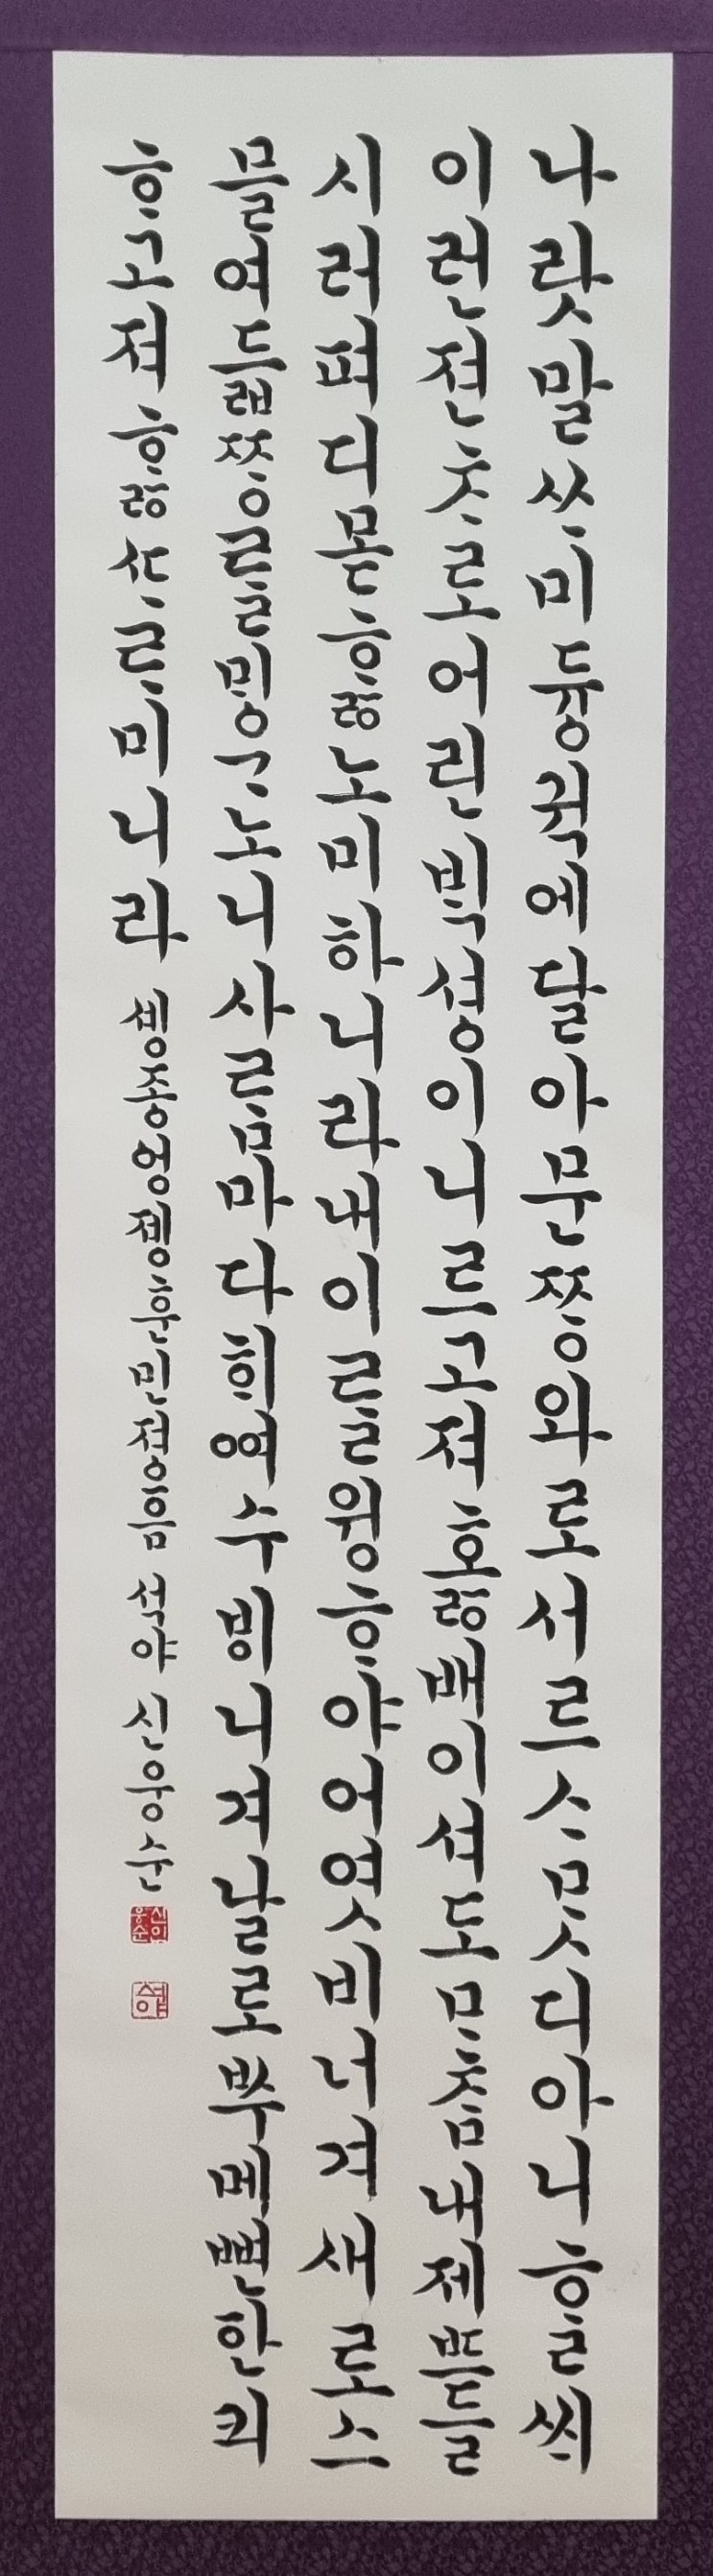 나랏말ᄊᆞ미듕귁에달아문ᄍᆞᆼ와로서르ᄉᆞᄆᆞᆺ디아니ᄒᆞᆯᄊᆡ
이런젼ᄎᆞ로어린ᄇᆡᆨ셩이니르고져호ᇙ배이셔도ᄆᆞᄎᆞᆷ내제ᄠᅳ들
시러펴디몯ᄒᆞᇙ노미하니라내이ᄅᆞᆯ윙ᄒᆞ야어엿비너겨새로스
믈여듧ᄍᆞᆼᄅᆞᆯᄆᆡᇰᄀᆞ노니사ᄅᆞᆷ마다ᄒᆡᅇᅧ수ᄫᅵ니겨날로ᄡᅮ메뼌ᅙᅡᆫ킈
ᄒᆞ고져ᄒᆞᇙᄯᆞᄅᆞ미니라 솅종엉졩훈민졍ᅙᅳᆷ 석야 신웅순